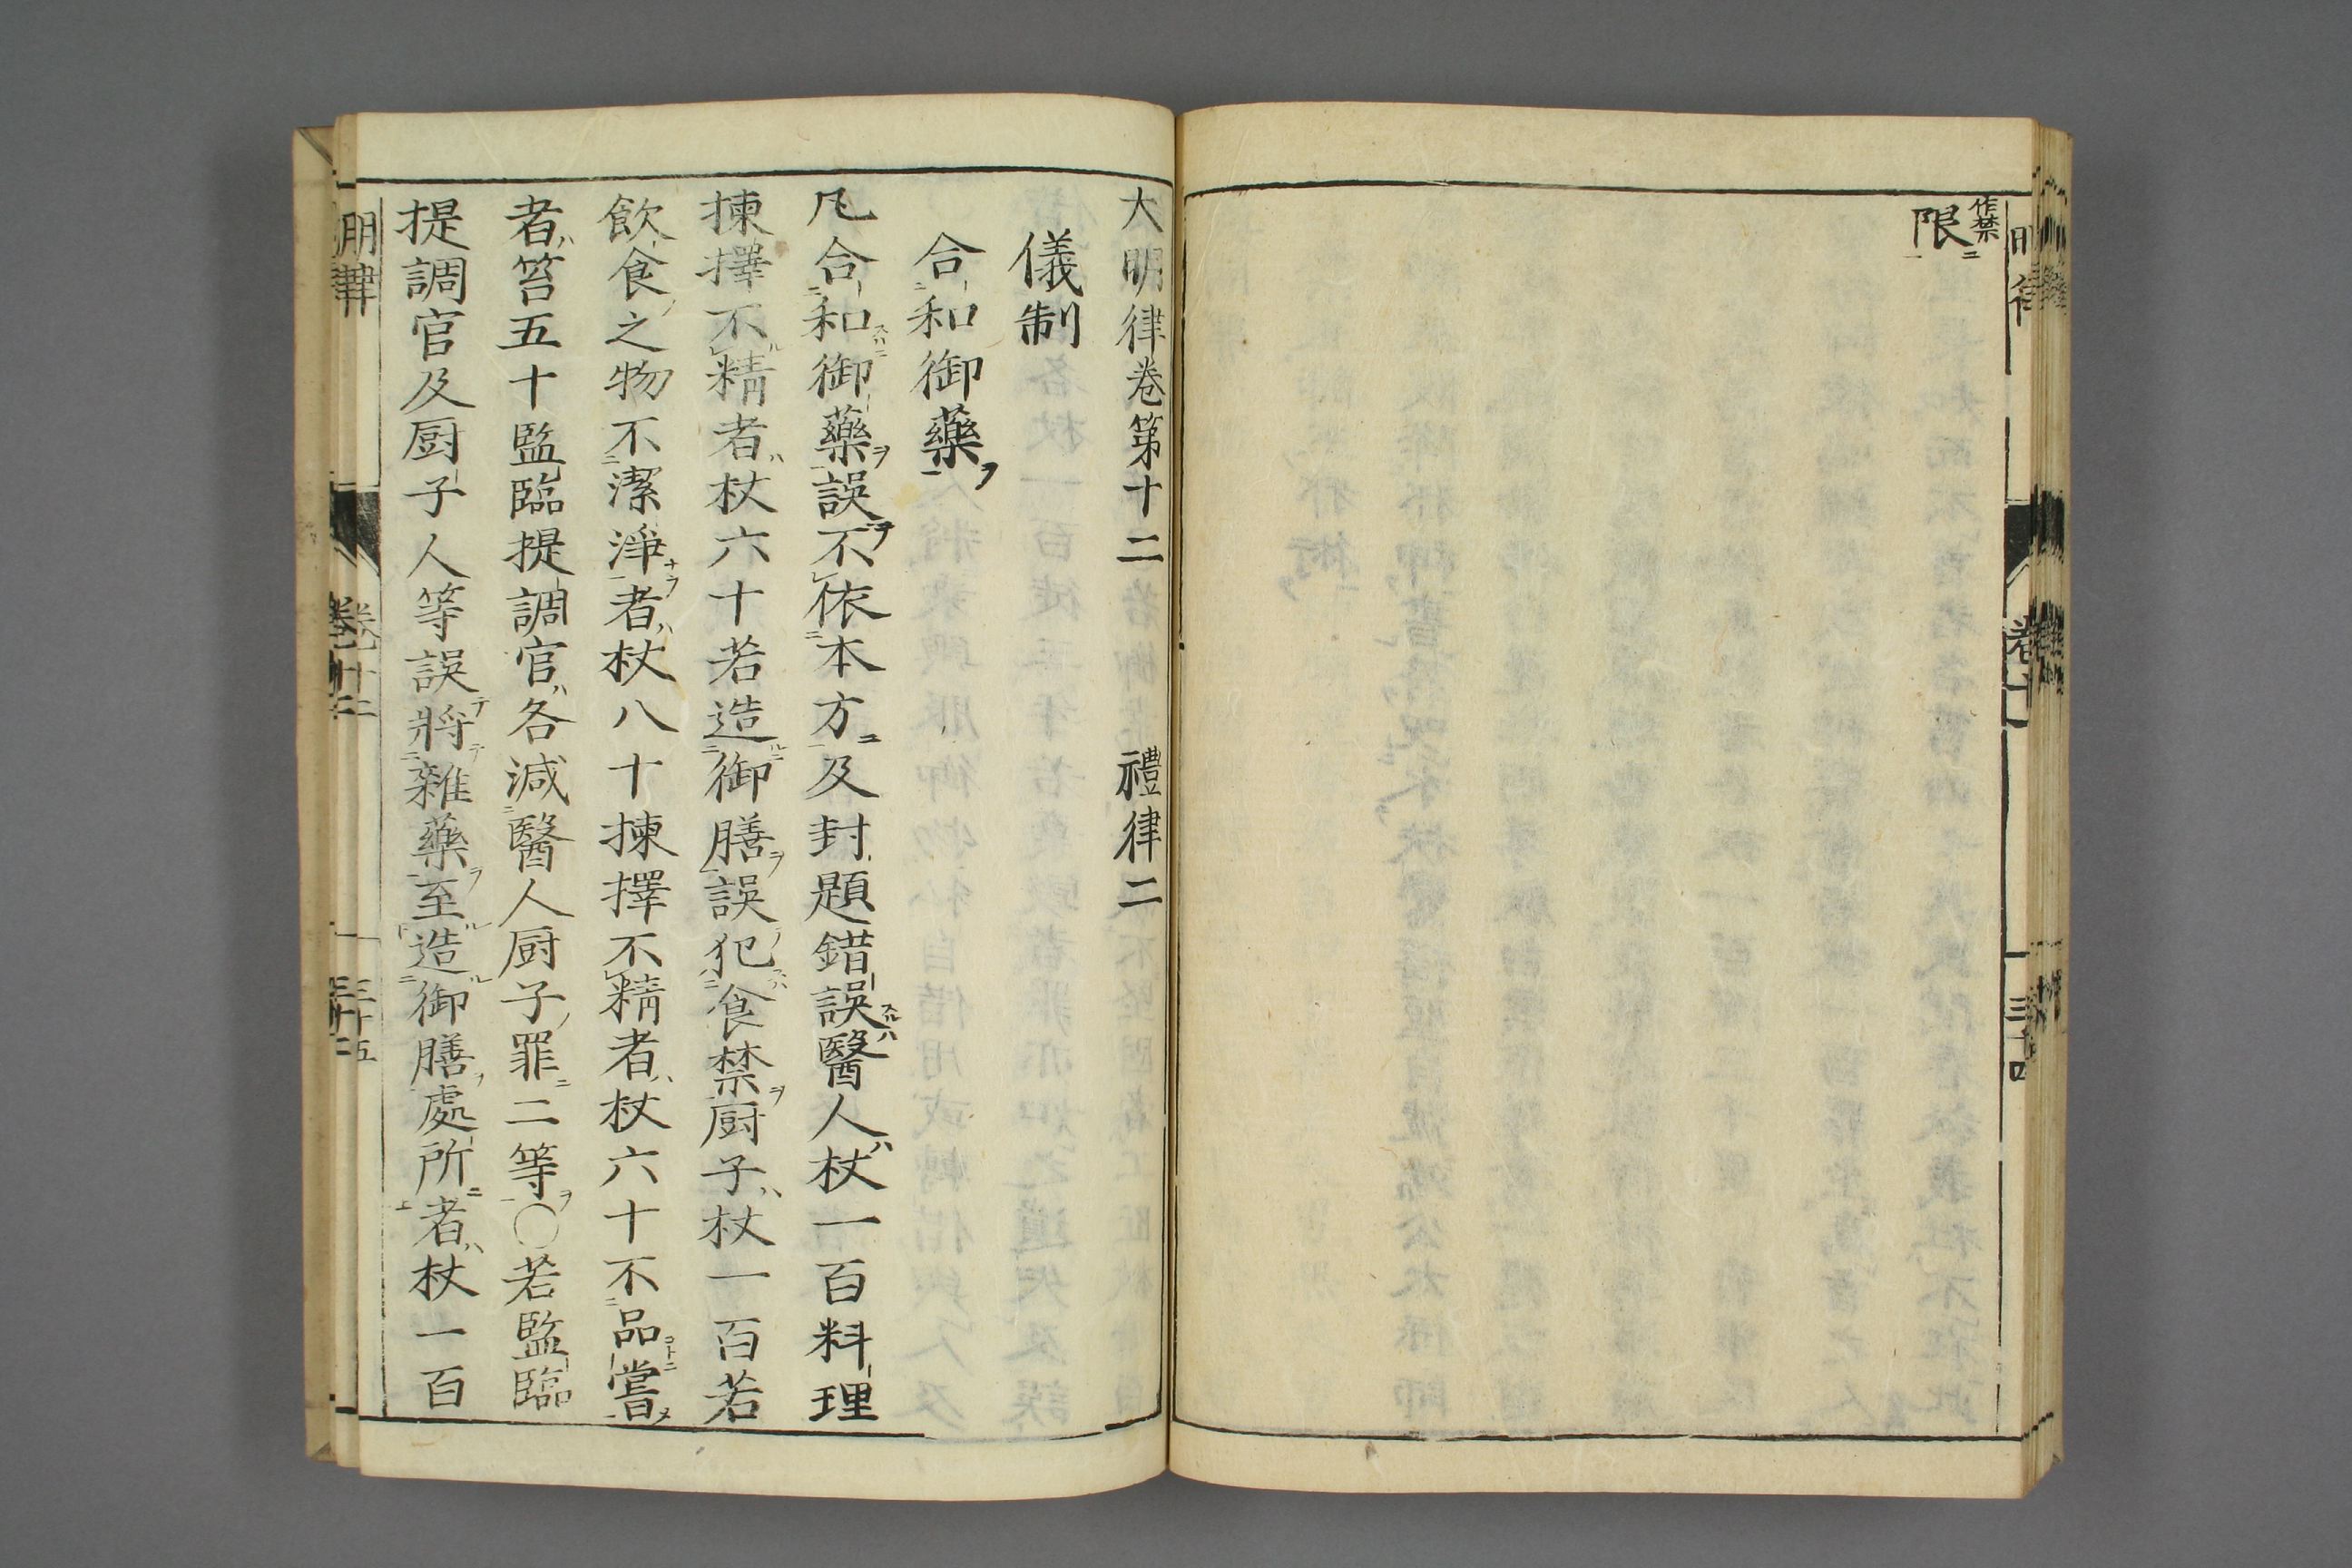 作禁
限
大明律卷第十二 禮律二
儀制
合和御藥
凡合和御藥誤不依本方及封題錯誤醫人杖一百料理
揀擇不精者杖六十若造御膳誤犯食禁厨子杖一百若
飲食之物不潔淨者杖八十揀擇不精者杖六十不品嘗
者笞五十監臨提調官各減醫人厨子罪二等○若監臨
提調官及厨子人等誤將雜藥至造御膳處所者杖一百
卷十二
三十五